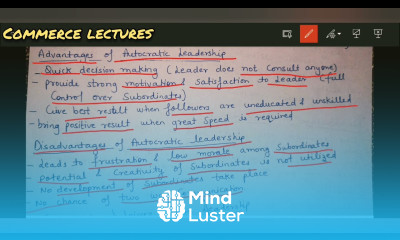 COMMERCE LECTURES
Advantages of Autocratic Leadership
- Quick decision making (Leader does not consult anyone)
- Provide strong motivation & Satisfaction to Leader (full
Control over Subordinates)
- Give best result when followers are uneducated & unskilled
- bring positive result when great speed is required
Disadvantages of Autocratic leadership
- leads to frustration & low morale among Subordinates
- Potential & Creativity of Subordinates is not utilized
- No development of Subordinates take place
- No chance of two
leadership
Mind
Luster